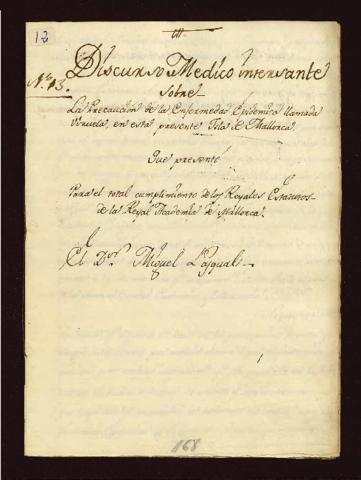 12
Nº 13.
Discurso Medico interesante
sobre
La Precaucion de la Enfermedad Epidemica llamada
Viruela, en esta presente Isla de Mallorca
Que presenté
Para el total cumplimiento de los Reyales Estatutos
de la Reyal Academia de Mallorca.
El Dor. Miguel Pasqual
168